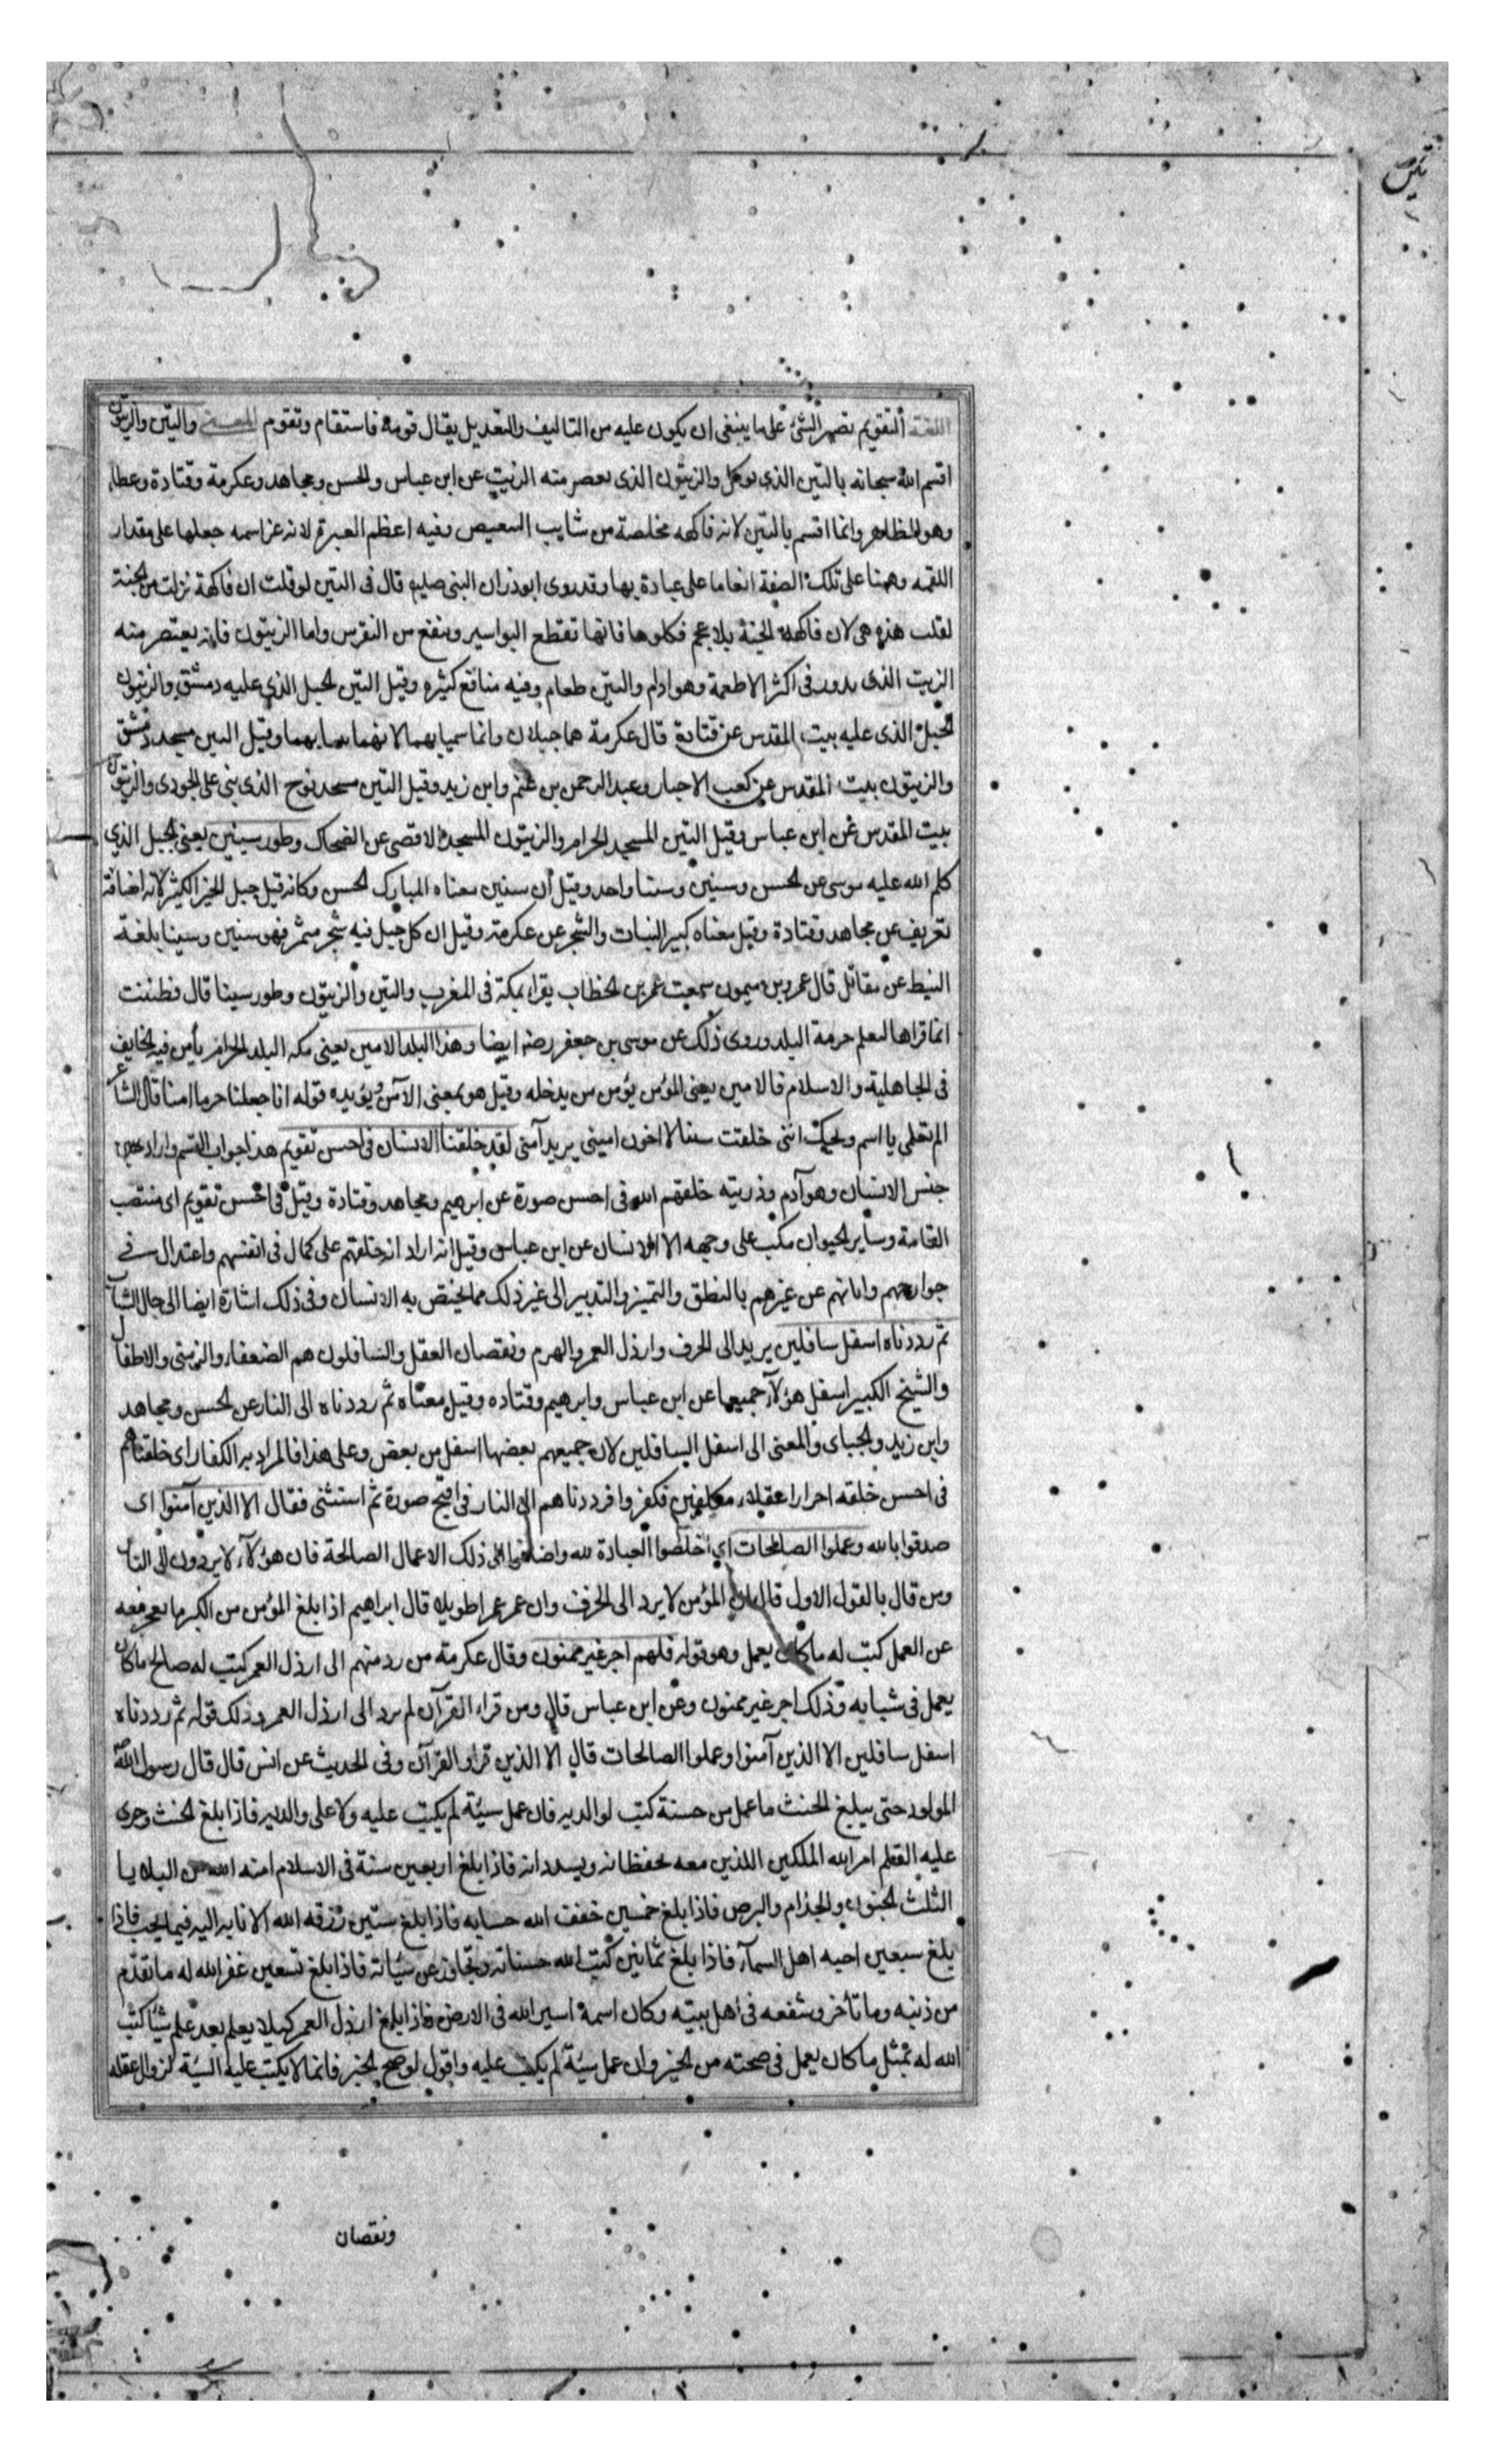 اللغة التقويم تصيير الشئ على ما ينبغى ان يكون عليه من التاليف والتعديل يقال قومه فاستقام وتقوم المعنى والتين والزيتون
اقسم الله سبحانه بالتين الذى يوكل والزيتون الذى يعصر منه الزيت عن ابن عباس والحسن ومجاهد وعكرمة وقتادة وعطا
وهو الظاهر وانما اقسم بالتين لانه فاكهه مخلصة من شايب التنغيص وفيه اعظم العبرة لانه عز اسمه جعلها على مقدار
اللقمه وهيئها على تلك الصفة انعاما على عبادة بها وقد روى ابوذر ان النبى صلعم قال فى التين لو قلت ان فاكهة نزلت من الجنة
لقلت هذه هى لان فاكهة الجنة بلا عجم فكلوها فانها تقطع البواسير وينفع من النقرس واما الزيتون فانه يعتصر منه
الزيت الذى يدور فى اكثر الاطعمة وهو ادام والتين طعام وفيه منافع كثيره وقيل التين الجبل الذى عليه دمشق والزيتون
الجبل الذى عليه بيت المقدس عن قتادة قال عكرمة هما جبلان وانما سميا بهما لانهما ينبتا بهما وقيل التين مسجد دمشق
والزيتون بيت المقدس عن كعب الاحبار وعبد الرحمن بن غنم وابن زيد وقيل التين مسجد نوح الذى بنى على الجودى والزيتون
بيت المقدس عن ابن عباس وقيل التين المسجد الحرام والزيتون المسجد الاقصى عن الضحاك وطور سينين يعنى الجبل الذي
كلم الله عليه موسى عن الحسن وسينين وسينا واحد وقيل أن سنين معناه المبارك الحسن وكانه قيل جبل الخير الكثير لانه اضافة
تعريف عن مجاهد وقتادة وقيل معناه كبير النبات والشجر عن عكرمة وقيل ان كل جبل فيه شجر مثمر فهو سنين وسينا بلغة
النبط عن مقاتل قال عمرو بن ميمون سمعت عمر بن الخطاب يقراء بمكة فى المغرب والتين والزيتون وطور سينا قال فظننت
انما قراها ليعلم حرمة البلد وروى ذلك عن موسى بن جعفر رضه ايضا وهذا البلد الامين يعنى مكه البلد الحرام يأمن فيه الخايف
فى الجاهلية والاسلام فالامين يعنى المؤمن يؤمن من يدخله وقيل هو بمعنى الآمن ويؤيده قوله انا جعلنا حرما امنا قال الشاعر
الم تعلمى يا اسم ويحك اننى خلفت يمينا لا اخون امينى يريد آمنى لقد خلقنا الانسان فى احسن تقويم هذا جواب القسم واراد
جنس الانسان وهو آدم وذريته خلقهم الله فى احسن صورة عن ابرهيم ومجاهد وقتادة وقيل فى احسن تقويم اى منتصب
القامة وساير الحيوان مكب على وجهه الا الانسان عن ابن عباس وقيل انه اراد انه خلقهم على كمال فى انفسهم واعتدال فى
جوارحهم وابانهم عن غيرهم بالنطق والتميز والتدبير الى غير ذلك مما يختص به الانسان وفى ذلك اشارة ايضا الى حال الشباب
ثم رددناه اسفل سافلين يريد الى الخرف وارذل العمر والهرم ونقصان العقل والسافلون هم الضعفاء والزمنى والاطفال
والشيخ الكبير اسفل هؤلآء جميعا عن ابن عباس وابرهيم وقتاده وقيل معناه ثم رددناه الى النار عن الحسن ومجاهد
وابن زيد والجباى والمعنى الى اسفل السافلين لان جميعهم بعضها اسفل من بعض وعلى هذا فالمراد به الكفار اى خلقناهم
فى احسن خلقه احرارا عقلاء مكلفين فكفروا فرددناهم الى النار فى اقبح صورة ثم استثنى فقال الا الذين آمنوا اى
صدقوا بالله وعملوا الصالحات اي اخلصوا العبادة لله واضافوا الى ذلك الاعمال الصالحة فان هؤلآء لا يردون الى النار
ومن قال بالقول الاول قال ان المؤمن لا يرد الى الخرف وان عمر عمرا طويلا قال ابراهيم اذا بلغ المؤمن من الكبر ما يعجز معه
عن العمل كتب له ما كان يعمل وهو قوله فلهم اجر غير ممنون وقال عكرمة من رد منهم الى ارذل العمر كتب له صالح ما كان
يعمل فى شبابه وذلك اجر غير ممنون وعن ابن عباس قال ومن قراء القرآن لم يرد الى ارذل العمر وذلك قوله ثم رددناه
اسفل سافلين الا الذين آمنوا وعملوا الصالحات قال الا الذين قراو القرآن وفى الحديث عن انس قال قال رسول الله
المولود حتى يبلغ الحنث ما عمل من حسنة كتب لوالديه فان عمل سيئة لم يكتب عليه ولا على والديه فاذا بلغ الحنث وجرى
عليه القلم امر الله الملكين اللذين معه يحفظانه ويسددانه فاذا بلغ اربعين سنة فى الاسلام امنه الله من البلايا
الثلث الجنون والجذام والبرص فاذا بلغ خمسين خفف الله حسابه فاذا بلغ ستين رزقه الله الانابه اليه فيما يحب فاذا
بلغ سبعين احبه اهل السمآء فاذا بلغ ثمانين كتب الله حسناته وتجاوز عن سيئاته فاذا بلغ تسعين غفر الله له ما تقدم
من ذنبه وما تأخر وشفعه فى اهل بيته وكان اسمه اسير الله فى الارض فاذا بلغ ارذل العمر كيلا يعلم بعد علم شيئا كتب
الله له بمثل ما كان يعمل فى صحته من الخير وان عمل سيئة لم يكتب عليه واقول لو صح الخبر فانما لا يكتب عليه السيئة لزوال عقله
ونقصان